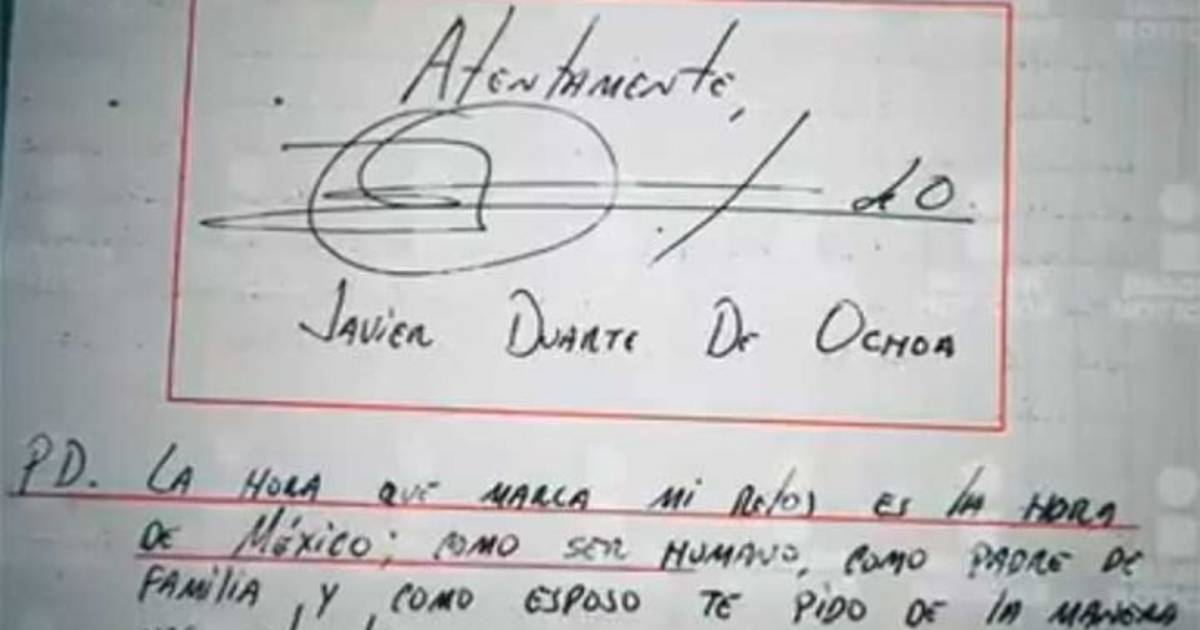 Atentamente,
d O.
Javier Duarte De Ochoa
PD. La hora que marca mi reloj es la hora
de México; como ser humano, como padre de
familia, y como esposo te pido de la manera